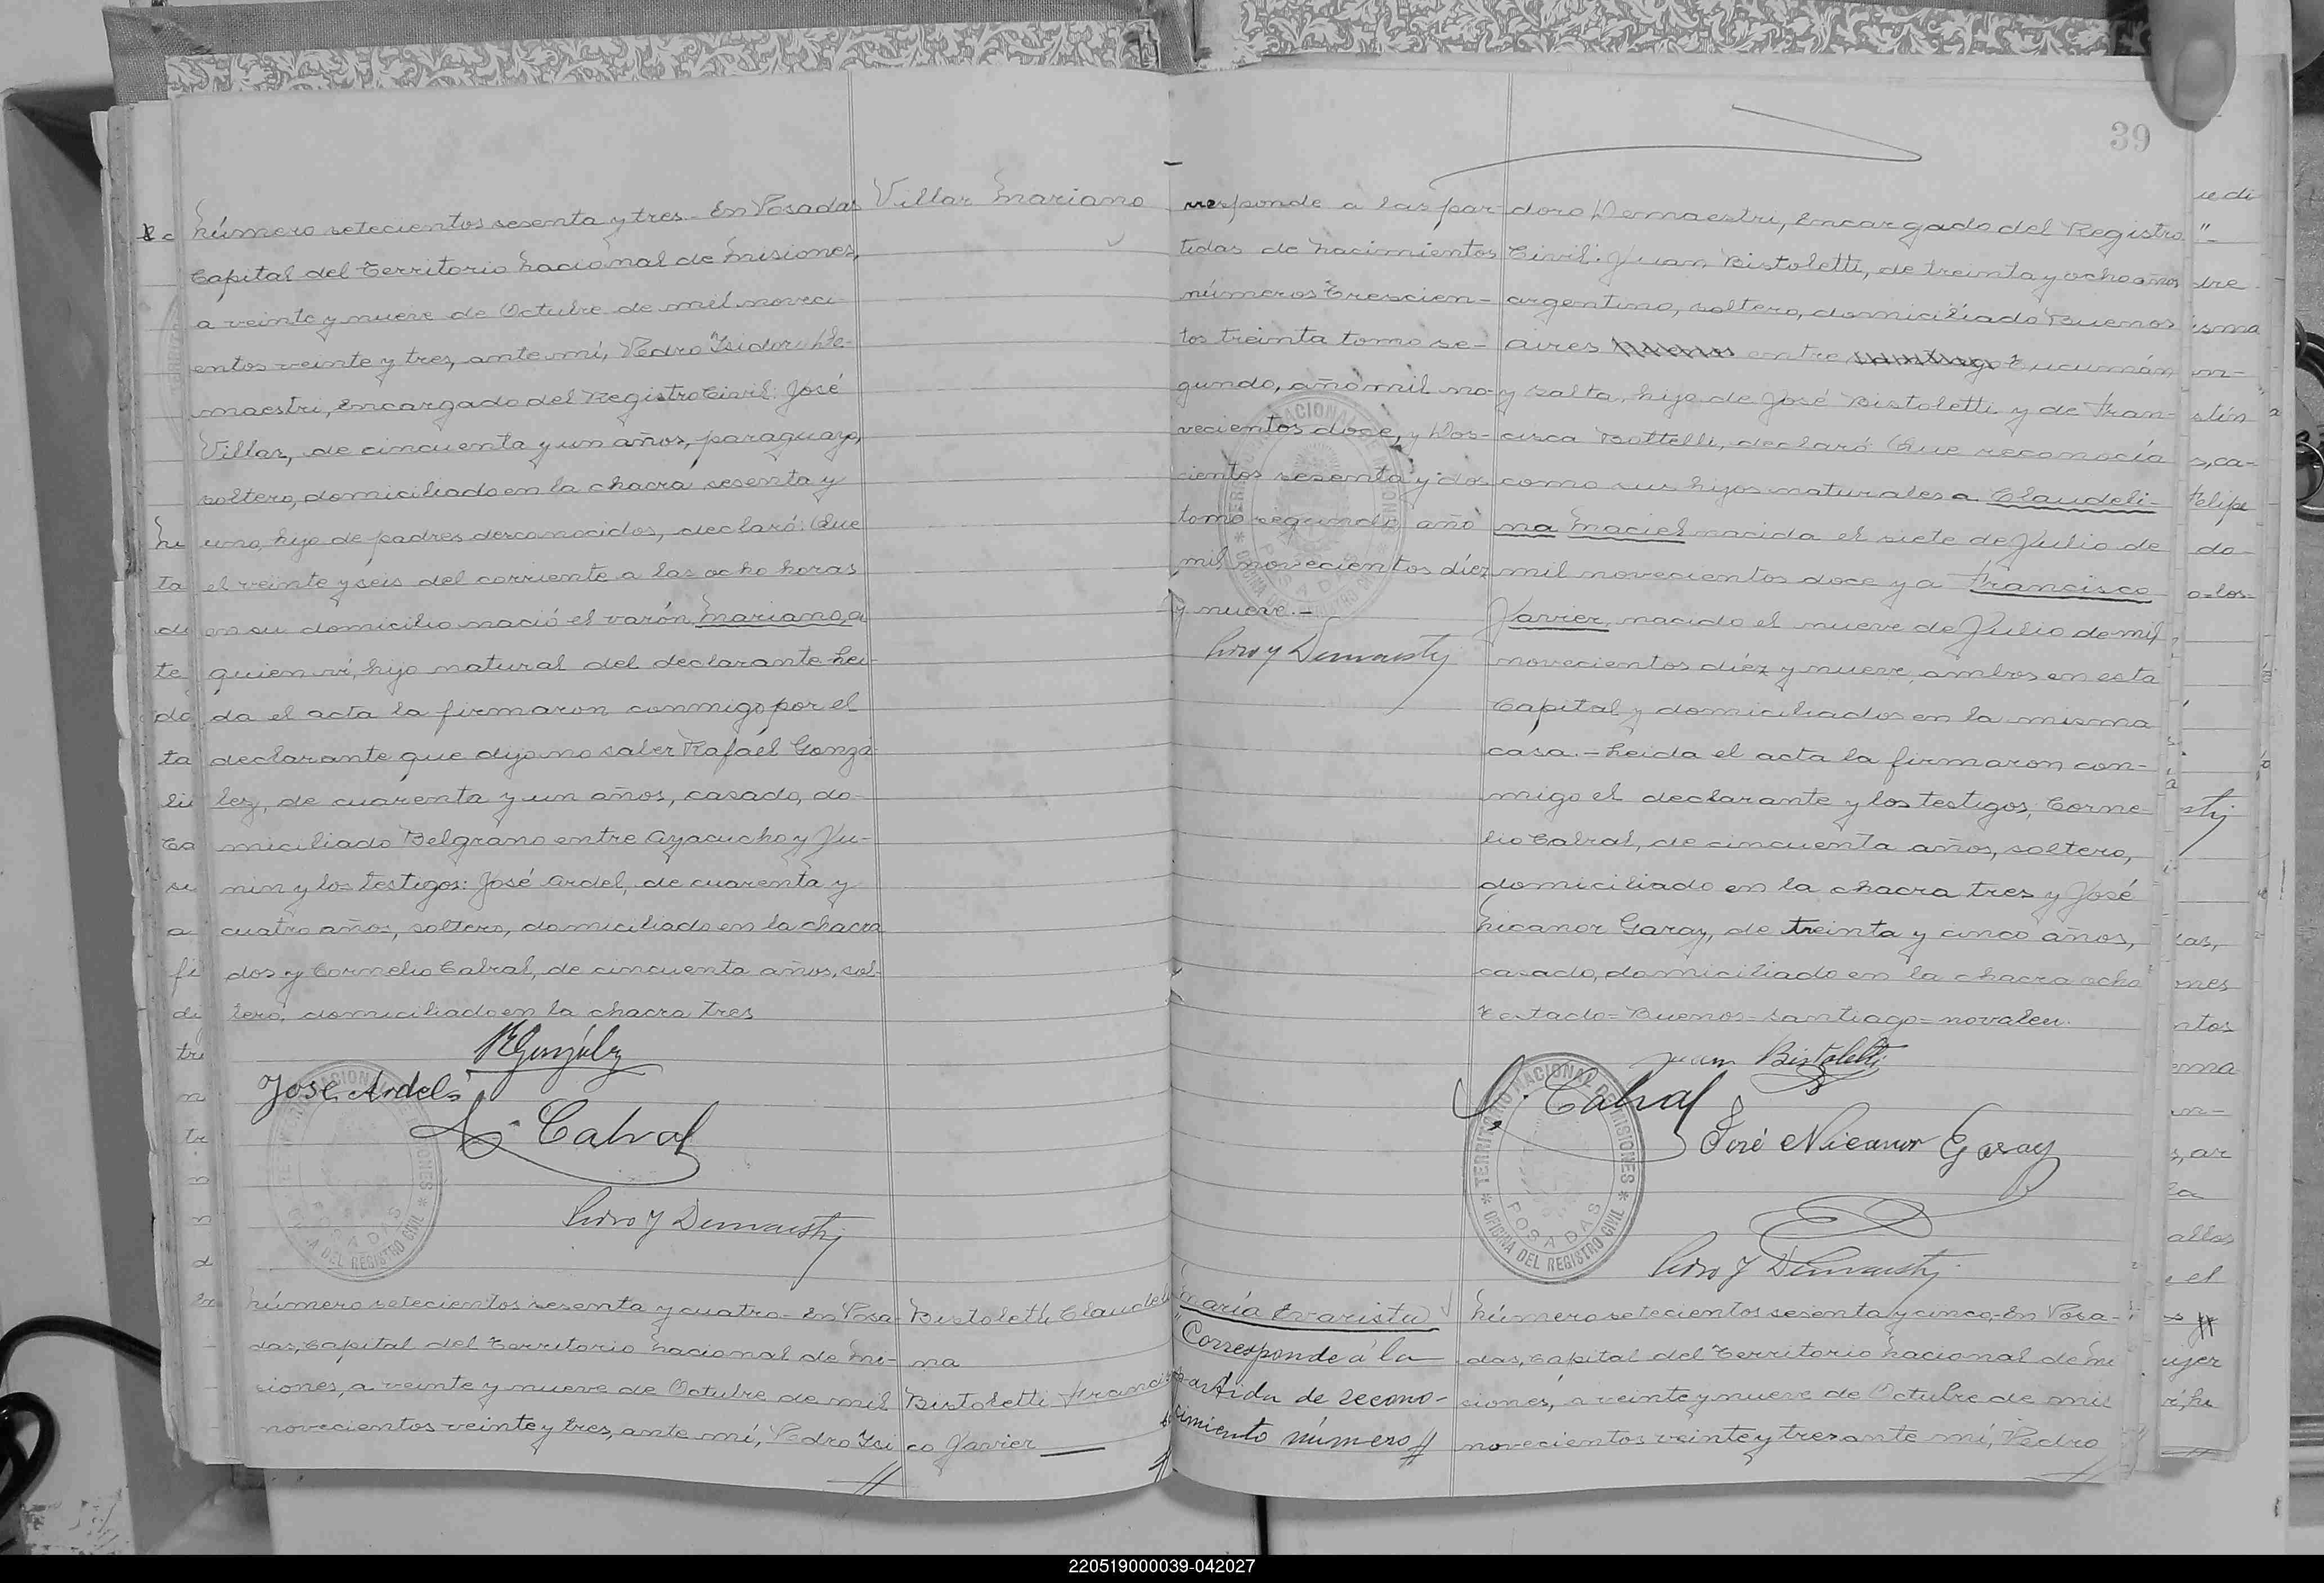 Número setecientos sesenta y tres.- En Posadas
Capital del Territorio Nacional de Misiones,
a veinte y nueve de Octubre de mil noveci-
entos veinte y tres, ante mí, Pedro Isidoro De-
maestri, Encargado del Registro Civil: José
Villar, de cincuenta y un años, paraguayo,
soltero, domiciliado en la chacra sesenta y
uno, hijo de padres desconocidos, declaró: Que
el veinte y seis del corriente a las ocho horas
en su domicilio nació el varón Mariano, a
quien ví, hijo natural del declarante. Leí-
da el acta la firmaron conmigo por el
declarante que dijo no saber Rafael Gonzá-
lez, de cuarenta y un años, casado, do-
miciliado Belgrano entre Ayacucho y Ju-
nin y los testigos: José Ardel, de cuarenta y
cuatro años, soltero, domiciliado en la chacra
dos y Cornelio Cabral, de cincuenta años, sol-
tero, domiciliado en la chacra tres
R González
Jose Ardel
C. Cabral
Pedro I Demaestri
Villar Mariano
Número setecientos sesenta y cuatro- En Posa-
das, Capital del Territorio Nacional de Mi-
siones, a veinte y nueve de Octubre de mil
novecientos veinte y tres, ante mí, Pedro Isi
Bistoletti Claudeli
na
Bistoletti Francis
co Javier
39
rresponde a las par-
tidas de nacimientos
números Trescien-
tos treinta tomo se-
gundo, año mil no-
vecientos doce, y Dos-
cientos sesenta y dos
tomo segundo, año
mil novecientos diéz
y nueve.-
Pedro I Demaestri
doro Demaestri, Encargado del Registro
Civil: Juan Bistoletti, de treinta y ocho años
argentino, soltero, domiciliado Buenos
aires Buenos entre Santiago Tucumán
y Salta, hijo de José Bistoletti y de Fran-
cisca Bottelli, declaró: Que reconocía
como sus hijos naturales a Claudeli-
na Maciel nacida el siete de Julio de
mil novecientos doce y a Francisco
Javier, nacido el nueve de Julio de mil
novecientos diéz y nueve, ambos en esta
Capital y domiciliados en la misma
casa.- Leída el acta la firmaron con-
migo el declarante y los testigos; Corne-
lio Cabral, de cincuenta años, soltero,
domiciliado en la chacra tres y José
Nicanor Garay, de treinta y cinco años,
casado, domiciliado en la chacra ocho
Testado= Buenos= Santiago= no valen.
Juan Bistoletti
C. Cabral
José Nicanor Garay
Pedro I Demaestri
TERRITORIO NACIONAL DE MISIONES
POSADAS
OFICINA DEL REGISTRO CIVIL
María Evarista
"Corresponde á la
partida de recono-
cimiento número
Número setecientos sesenta y cinco.- En Posa-
das, Capital del Territorio Nacional de Mi
siones, a veinte y nueve de Octubre de mil
novecientos veinte y tres ante mí, Pedro
220519000039-042027